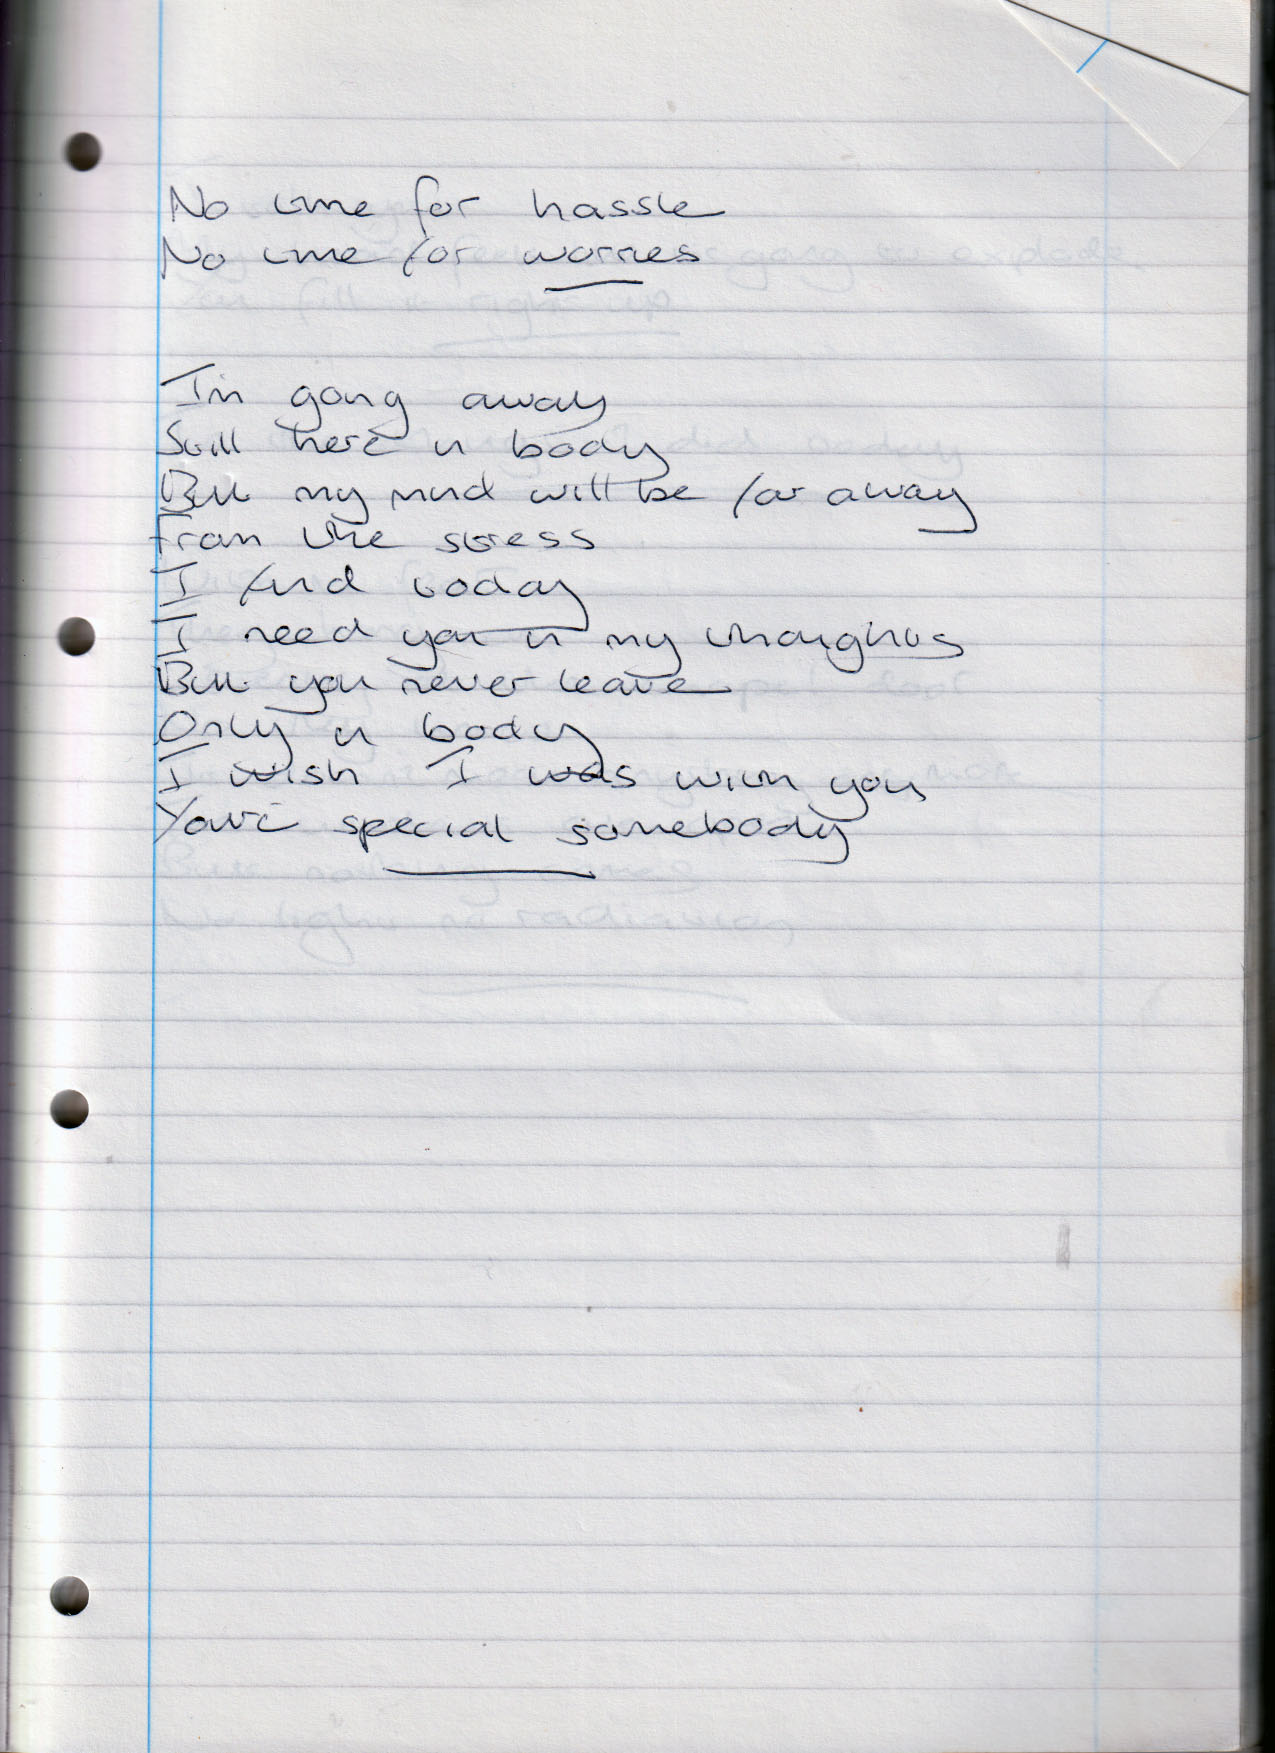 No time for hassle
No time for worries
I'm going away
Still here in body
But my mind will be far away
From the stress
I find today
I need you in my thoughts
But you never leave
Only in body
I wish I was with you
You're special somebody